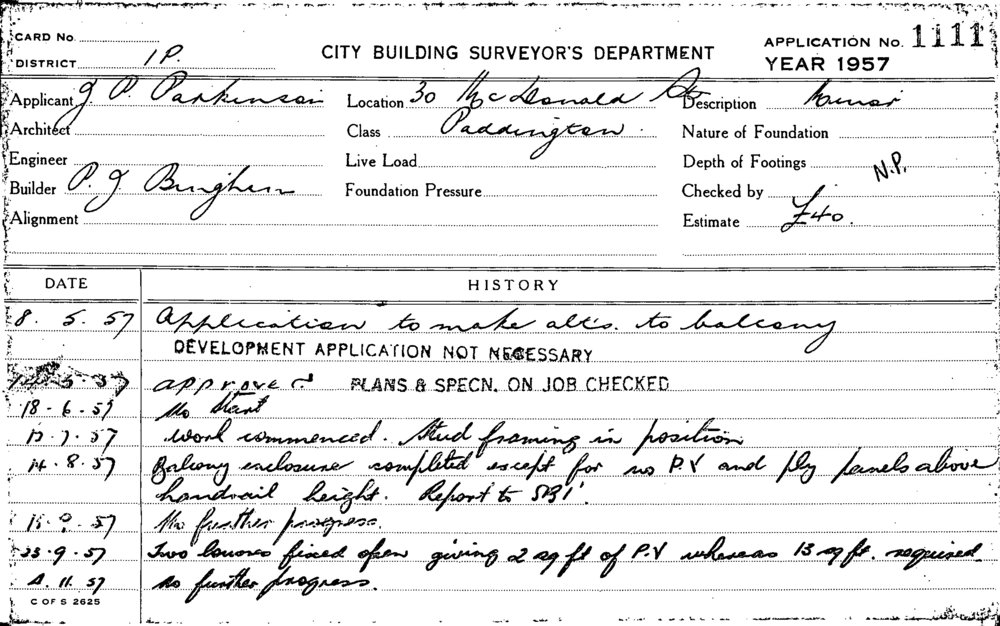 CARD No.
DISTRICT 1P.
CITY BUILDING SURVEYOR'S DEPARTMENT
APPLICATION No. 1111
YEAR 1957
Applicant J. P. Parkinson
Location 30 McDonald St
Description Minor
Architect
Class Paddington.
Nature of Foundation
Engineer
Live Load
Depth of Footings
N.P.
Builder P. J. Bingham
Foundation Pressure
Checked by
Alignment
Estimate £40.
DATE HISTORY
8. 5. 57 Application to make alt's. to balcony
DEVELOPMENT APPLICATION NOT NECESSARY
5-57 approved PLANS & SPECN. ON JOB CHECKED
18-6.57 No start
7.57 work commenced. Stud framing in position
14.8.57 Balcony enclosure completed except for no P.V and ply panels above
handrail height. Report to SBI.
57 No further progress.
23.9.57 Two louvres fixed open giving 2 sq ft of P.V whereas 13 sq ft. required
4.11.57 No further progress.
C OF S 2625